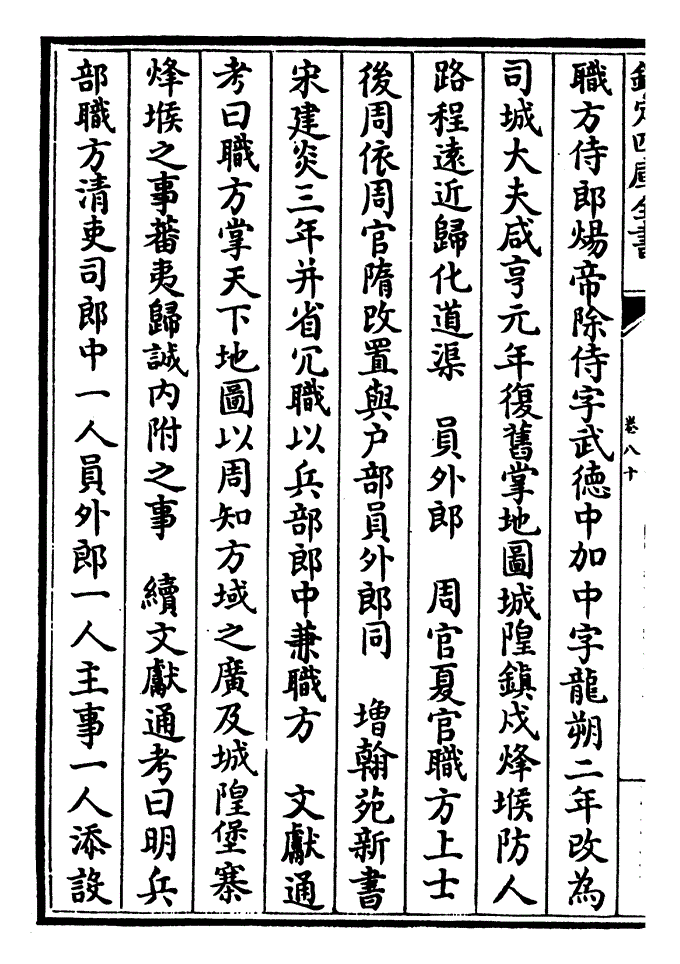 欽定四庫全書
卷八十
職方侍郎煬帝除侍字武徳中加中字龍朔二年改為
司城大夫咸亨元年復舊掌地圖城隍鎮戍烽堠防人
路程遠近歸化道渠 員外郎 周官夏官職方上士
後周依周官隋改置與户部員外郎同 増翰苑新書
宋建炎三年并省冗職以兵部郎中兼職方 文獻通
考曰職方掌天下地圖以周知方域之廣及城隍堡寨
烽堠之事蕃夷歸誠内附之事 續文獻通考曰明兵
部職方清吏司郎中一人員外郎一人主事一人添設